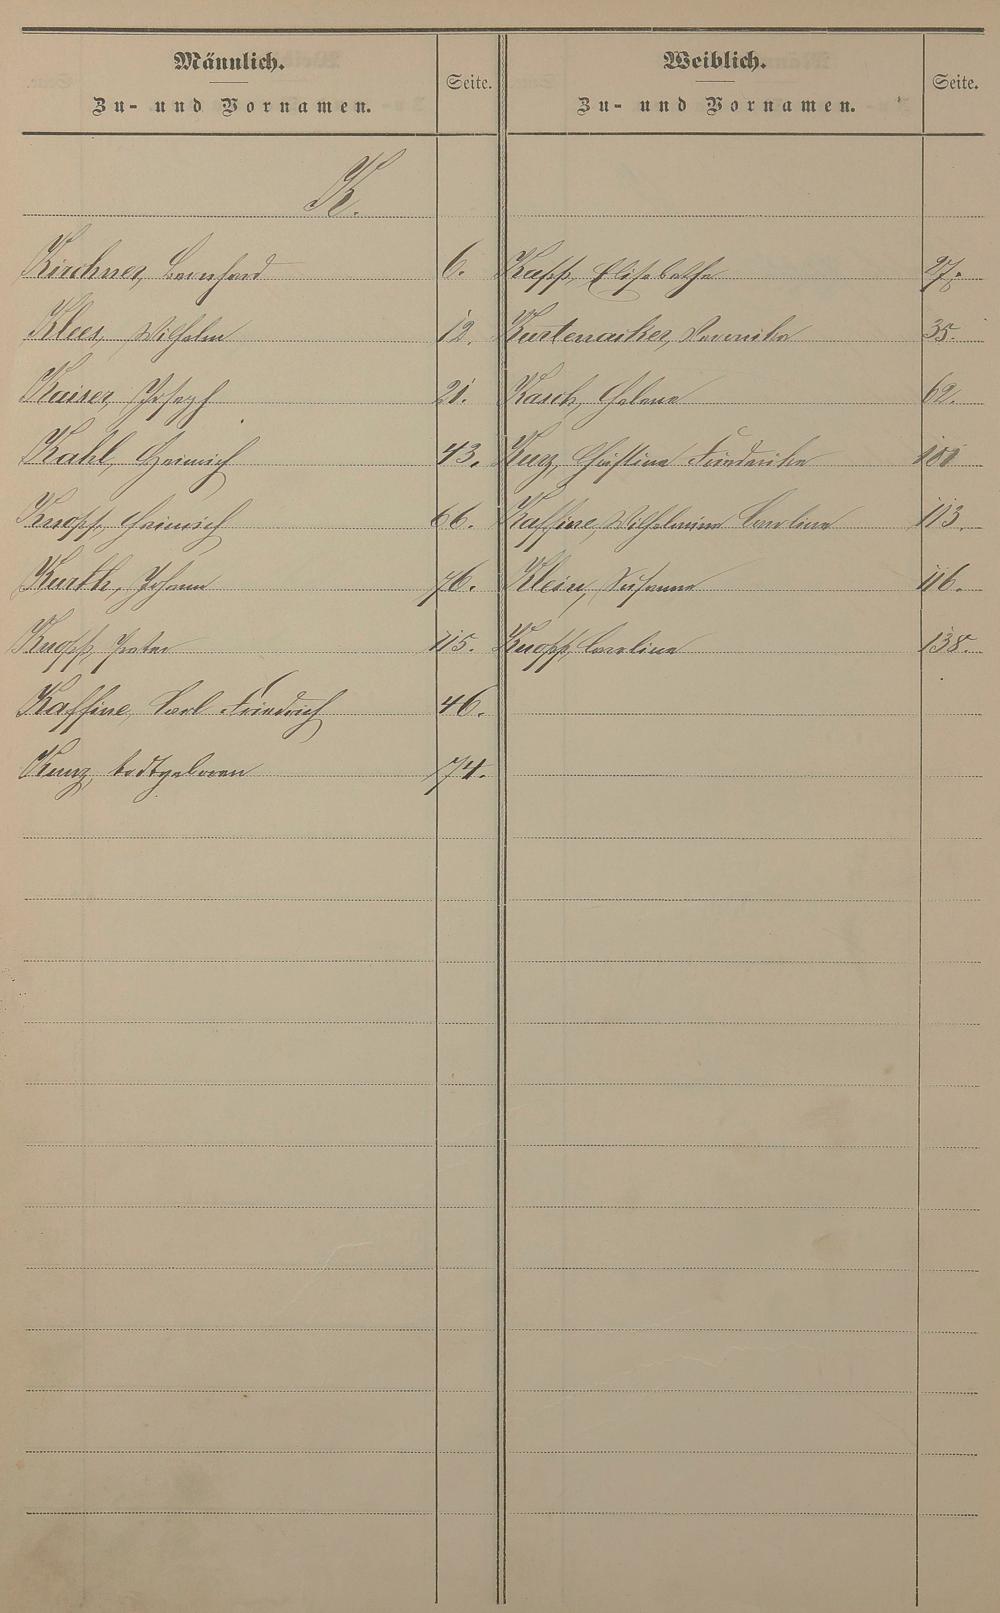 Männlich.
Zu- und Vornamen.
Seite.
Weiblich.
Zu- und Vornamen.
Seite.
K.
Kirchner, Bernhard 6. Kapp, Elisabetha 27.
Klees, Wilhelm 12. Kurtenaiker, Veronika 35.
Kaiser, Joseph 21. Kasch, Helena 62.
Kahl, Heinrich 43. Kurz, Christina Friederika 101
Knopp, Heinrich 66. Kaffine, Wilhelmina Carolina 113.
Kurth, Johann 76. Klein, Susanna 116.
Knopp, Peter 115. Knopp, Carolina 138.
Kaffine, Carl Friedrich 46.
Kunz, todtgeboren 74.